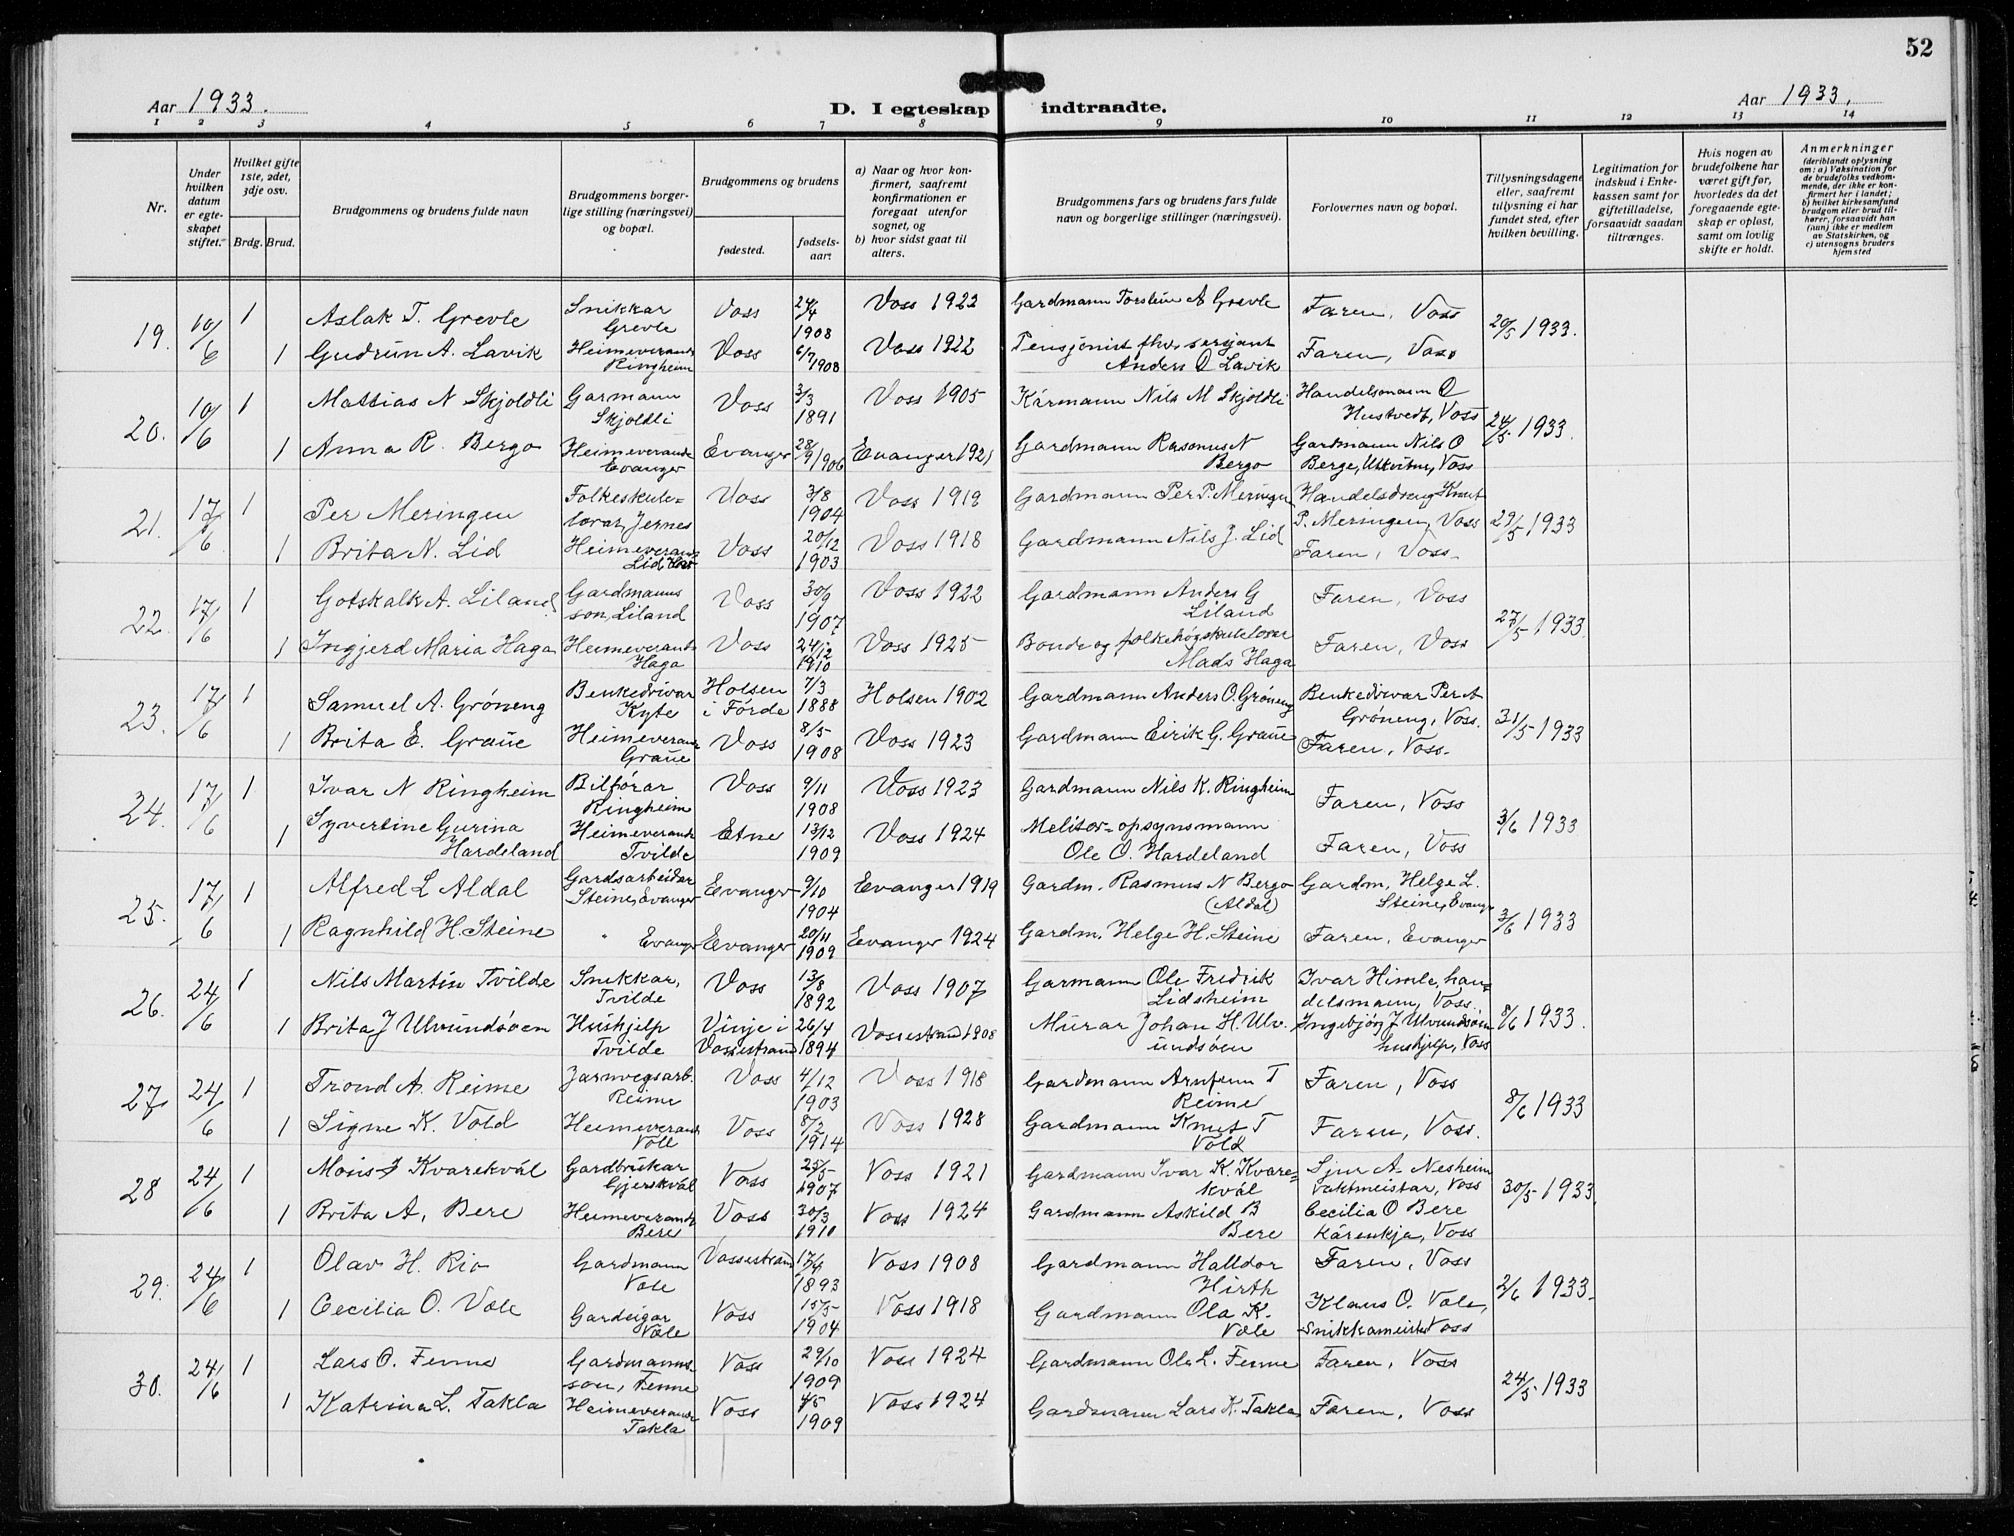 52
Aar 1933.
D. I egteskap indtraadte.
Aar 1933.
1 2 3 4 5 6 7 8 9 10 11 12 13 14
Nr.
Under hvilken datum er egteskapet stiftet.
Hvilket gifte 1ste, 2det, 3dje osv.
Brdg. Brud.
Brudgommens og brudens fulde navn
Brudgommens borgerlige stilling (næringsvei) og bopæl.
Brudgommens og brudens
fødested.
fødselsaar.
a) Naar og hvor konfirmert, saafremt konfirmationen er foregaat utenfor sognet, og
b) hvor sidst gaat til alters.
Brudgommens fars og brudens fars fulde navn og borgerlige stillinger (næringsvei).
Forlovernes navn og bopæl.
Tillysningsdagene eller, saafremt tillysning ei har fundet sted, efter hvilken bevilling.
Legitimation for indskud i Enkekassen samt for giftetilladelse, forsaavidt saadan tiltrænges.
Hvis nogen av brudefolkene har været gift før, hvorledes da det foregaaende egteskap er opløst, samt om lovlig skifte er holdt.
Anmerkninger
(deriblandt oplysning om: a) Vaksination for de brudefolks vedkommende, der ikke er konfirmert her i landet; b) hvilket kirkesamfund brudgom eller brud tilhører, forsaavidt han (hun) ikke er medlem av Statskirken, og c) utensogns bruders hjemsted
19. 10/6 1 Aslak T. Grevle Snikkar Grevle Voss 24/4 1908 Voss 1922 Gardmann Torstein A Grevle Faren, Voss 20/5 1933.
1 Gudrun A. Lavik Heimeverande Ringheim Voss 6/7 1908 Voss 1922 Pensjonist fhv. sersjant Anders O Lavik Faren, Voss
20. 10/6 1 Mattias N Skjoldli Garmann Skjoldli Voss 3/3 1891 Voss 1905 Kårmann Nils M Skjoldli Handelsmann O Hustvedt, Voss 24/5 1933.
1 Anna R. Bergo Heimeverande Evanger Evanger 28/9 1906 Evanger 1921 Gardmann Rasmus N Bergo Gardmann Nils O Berge, Utkvitne, Voss
21. 17/6 1 Per Meringen Folkeskulelærar, Jernes Voss 3/8 1904 Voss 1919 Gardmann Per P. Meringen Handelsdreng Knut P. Meringen, Voss 29/5 1933
1 Brita N. Lid Heimeverande Lid Voss 20/12 1903 Voss 1918 Gardmann Nils J. Lid Faren, Voss
22. 17/6 1 Gotskalk A. Liland Gardmanns son, Liland Voss 30/9 1907 Voss 1922 Gardmann Anders G Liland Faren, Voss 27/5 1933.
1 Ingjerd Maria Haga Heimeverande Haga Voss 24/12 1910 Voss 1925 Bonde og folkehøgskulelærar Mads Haga Faren, Voss
23. 17/6 1 Samuel A. Grøneng Benkedrivar Kyte Holsen i Førde 7/3 1888 Holsen 1902 Gardmann Anders O. Grøneng Benkedrivar Per A Grøneng, Voss. 31/5 1933
1 Brita E. Graue Heimeverande Graue Voss 8/5 1908 Voss 1923 Gardmann Eirik G. Graue Faren, Voss.
24. 17/6 1 Ivar N Ringheim Bilførar Ringheim Voss 9/11 1908 Voss 1923 Gardmann Nils K. Ringheim Faren, Voss 3/6 1933
1 Syvertine Gurina Hardeland Heimeverande Tvilde Etne 13/12 1909 Voss 1924 Meliter-opsynsmann Ole O. Hardeland Faren, Voss
25. 17/6 1 Alfred L Aldal Gardsarbeidar Steine, Evanger Evanger 9/10 1904 Evanger 1919 Gardm. Rasmus N Bergo (Aldal) Gardm. Helge L. Steine, Evanger 3/6 1933
1 Ragnhild H. Steine " Evanger Evanger 20/11 1909 Evanger 1924 Gardm. Helge H. Steine Faren, Evanger
26. 24/6 1 Nils Martin Tvilde Snikkar, Tvilde Voss 13/8 1892 Voss 1907 Garmann Ole Fredrik Lidsheim Ivar Himle, handelsmann, Voss 8/6 1933.
1 Brita J Ulvundsøen Hushjelp Tvilde Vinje i Vossestrand 26/4 1894 Vossestrand 1908 Murar Johan H. Ulvundsøen Ingebjørg J Ulvundsøen hushjelp, Voss
27. 24/6 1 Trond A. Reime Jarnvegsarb. Reime Voss 4/12 1903 Voss 1918 Gardmann Arnfinn T Reime Faren, Voss 8/6 1933
1 Signe K. Vold Heimeverande Voll Voss 8/2 1914 Voss 1928 Gardmann Knut T Vold Faren, Voss.
28 24/6 1 Mons I Kvarekvål Gardbrukar Gjerskvål Voss 25/5 1907 Voss 1921 Gardmann Ivar K. Kvarekvål Sjur A. Nesheim vaktmeistar, Voss 30/5 1933.
1 Brita A. Bere Heimeverande Bere Voss 30/3 1910 Voss 1924 Gardmann Askild B Bere Cecilia O Bere kårenkja, Voss
29. 24/6 1 Olav H. Rio Gardmann Væle Vossestrand 17/4 1893 Voss 1908 Gardmann Halldor Hirth Faren, Voss 2/6 1933.
1 Cecilia O. Væle Gardeigar Væle Voss 15/5 1904 Voss 1918 Gardmann Ola K. Væle Klaus O. Væle, Snikkameister Voss
30. 24/6 1 Lars O. Fenne Gardmannsson, Fenne Voss 29/10 1909 Voss 1924 Gardmann Ole L. Fenne Faren, Voss 24/5 1933
1 Katrina L. Takla Heimeverande Takla Voss 4/5 1909 Voss 1924 Gardmann Lars K. Takla Faren, Voss